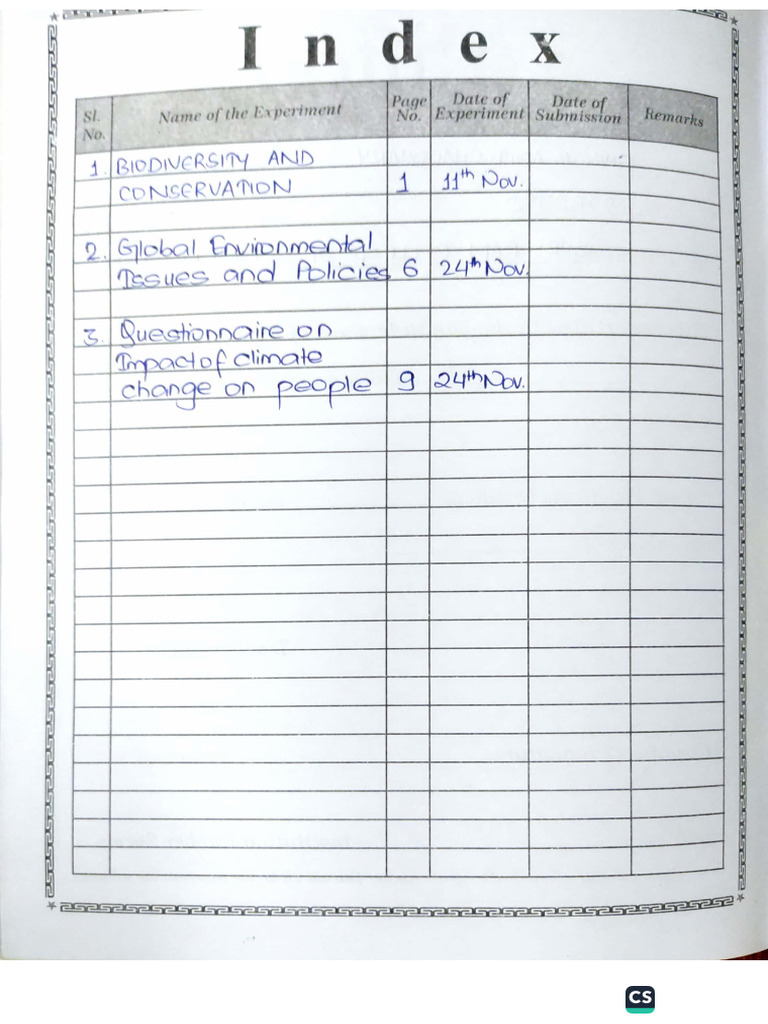 Index
Sl. No. Name of the Experiment Page No. Date of Experiment Date of Submission Remarks
1. BIODIVERSITY AND
CONSERVATION 1 11th Nov.
2. Global Environmental
Issues and Policies 6 24th Nov.
3. Questionnaire on
Impact of climate
change on people 9 24th Nov.
CS